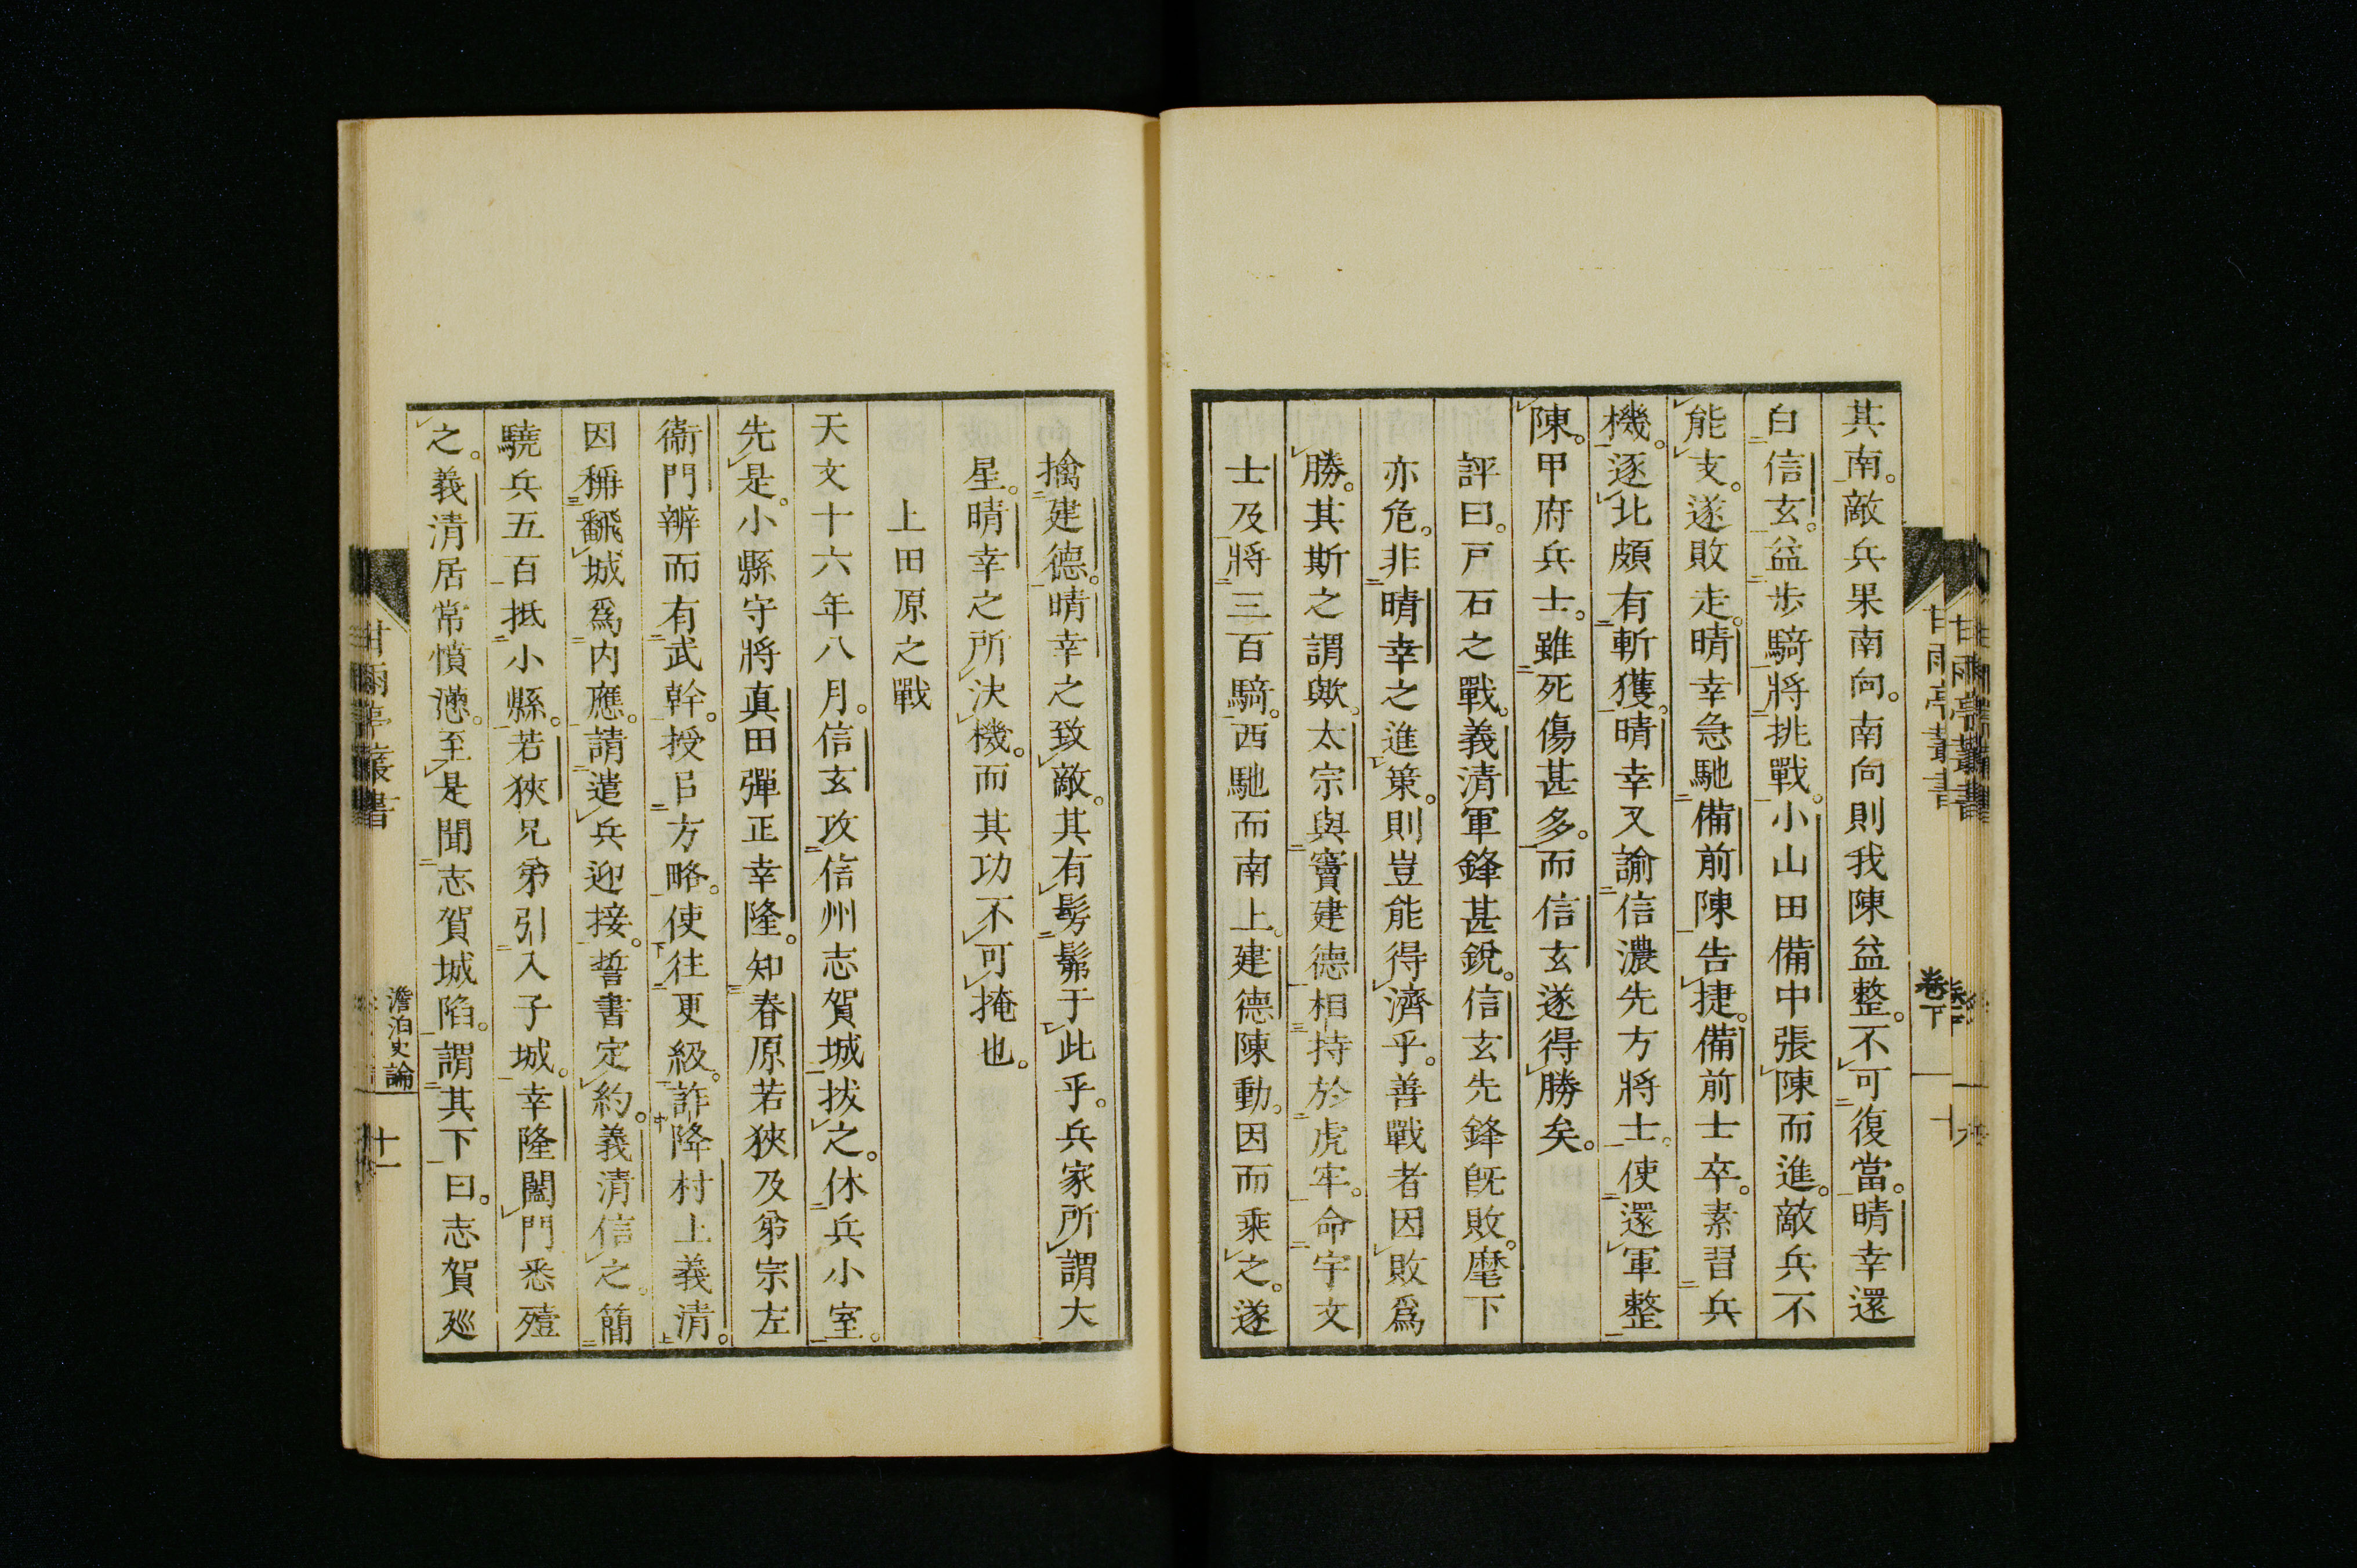 其南。敵兵果南向。南向則我陳益整。不可復當。晴幸還
白信玄。益步騎將挑戰。小山田備中張陳而進。敵兵不
能支。遂敗走。晴幸急馳備前陳告捷。備前士卒。素習兵
機。逐北頗有斬獲。晴幸又諭信濃先方將士。使還軍整
陳。甲府兵士。雖死傷甚多。而信玄遂得勝矣。
評曰。戸石之戰。義清軍鋒甚銳。信玄先鋒旣敗。麾下
亦危。非晴幸之進策。則豈能得濟乎。善戰者因敗爲
勝。其斯之謂歟。太宗與竇建德相持於虎牢。命宇文
士及將三百騎。西馳而南上。建德陳動。因而乘之。遂
擒建德。晴幸之致敵。其有髣髴于此乎。兵家所謂大
星。晴幸之所決機。而其功不可掩也。
上田原之戰
天文十六年八月。信玄攻信州志賀城拔之。休兵小室。
先是。小縣守將真田彈正幸隆。知春原若狹及弟宗左
衞門辨而有武幹。授㠯方略。使往更級。詐降村上義清。
因稱飜城爲内應。請遣兵迎接。誓書定約。義清信之。簡
驍兵五百抵小縣。若狹兄弟引入子城。幸隆闔門悉殪
之。義清居常憤懣。至是聞志賀城陷。謂其下曰。志賀廵
甘雨亭叢書
卷下
甘雨亭叢書
澹泊史論
十一